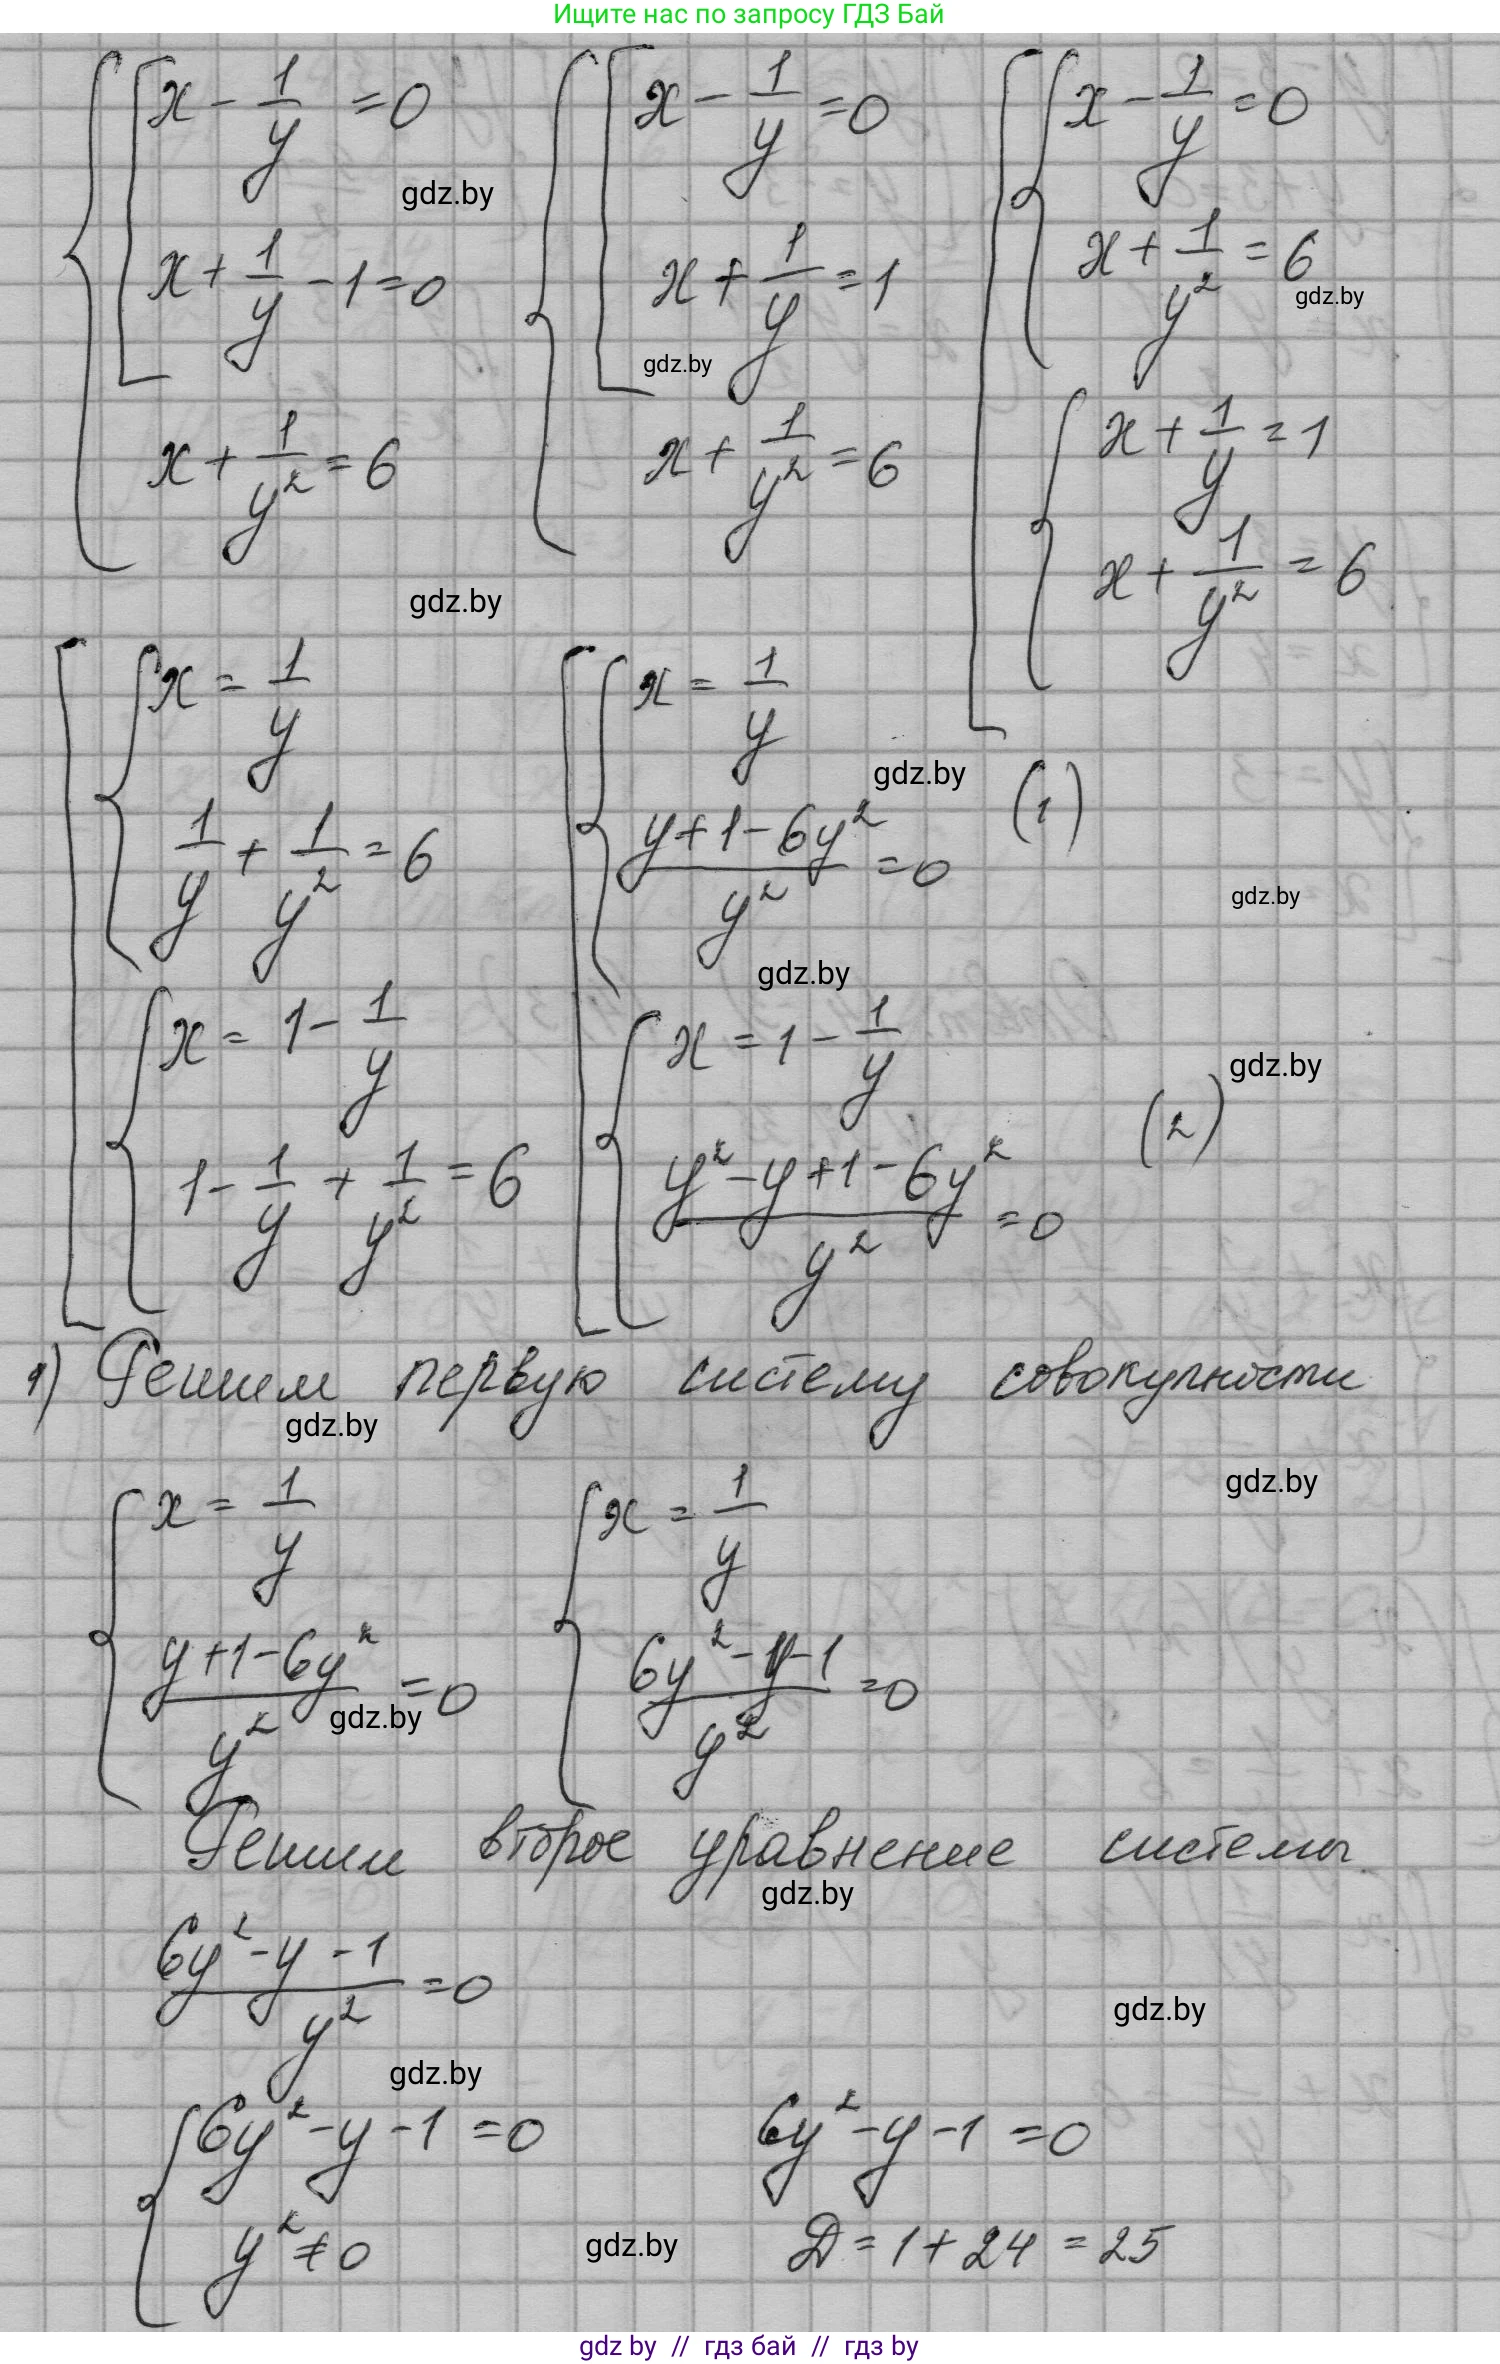 Ищите нас по запросу ГДЗ Бай
x - 1/y = 0
x + 1/y - 1 = 0
x + 1/y² = 6
x - 1/y = 0
x + 1/y = 1
x + 1/y² = 6
x - 1/y = 0
x + 1/y² = 6
x + 1/y = 1
x + 1/y² = 6
gdz.by
gdz.by
gdz.by
gdz.by
x = 1/y
1/y + 1/y² = 6
x = 1 - 1/y
1 - 1/y + 1/y² = 6
x = 1/y
(y + 1 - 6y²)/y² = 0 (1)
x = 1 - 1/y
(y² - y + 1 - 6y²)/y² = 0 (2)
gdz.by
gdz.by
gdz.by
gdz.by
1) Решим первую систему совокупности
gdz.by
gdz.by
x = 1/y
(y + 1 - 6y²)/y² = 0
x = 1/y
(6y² - y - 1)/y² = 0
gdz.by
Решим второе уравнение системы
gdz.by
(6y² - y - 1)/y² = 0
gdz.by
gdz.by
6y² - y - 1 = 0
y² ≠ 0
6y² - y - 1 = 0
gdz.by
Д = 1 + 24 = 25
gdz by // гдз бай // гдз by